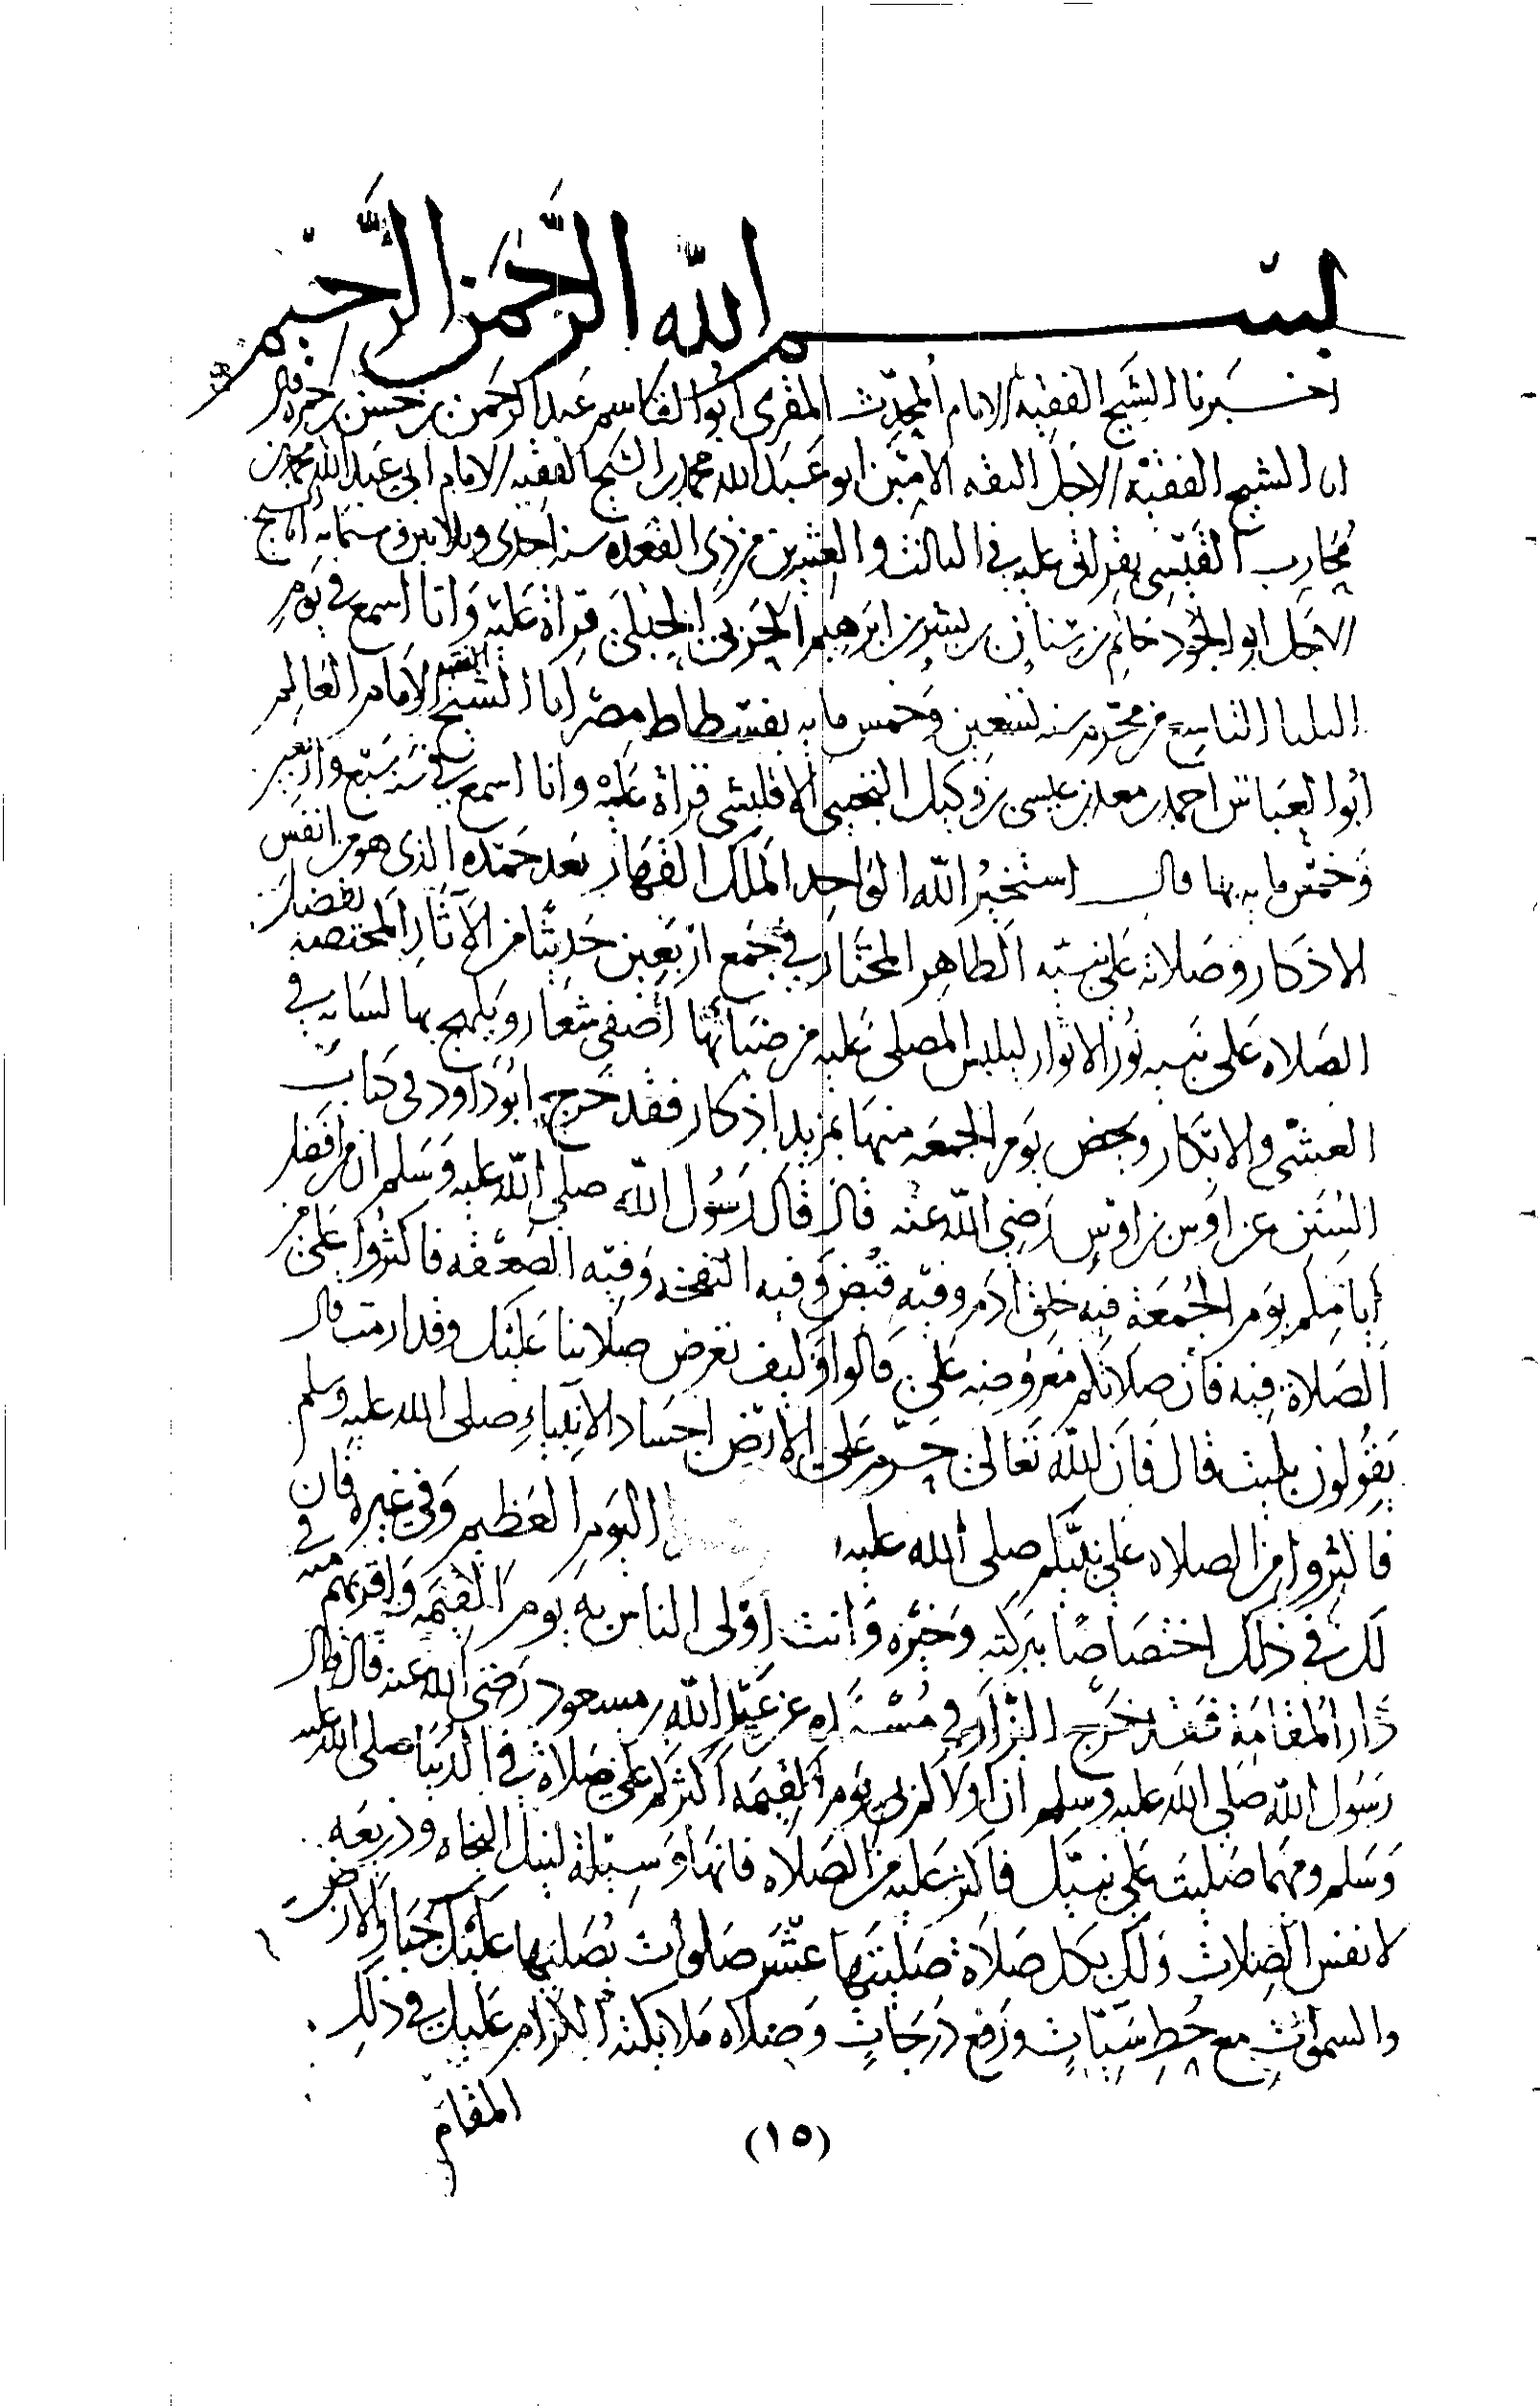 بسم الله الرحمن الرحيم
اخبرنا الشيخ الفقيه الامام المحدث المقرى ابو القاسم عبد الرحمن بن حسن بن حمزه قال
انا الشيخ الفقيه الاجل الثقه الامين ابو عبد الله محمد بن الشيخ الفقيه الامام ابى عبد الله محمد بن
محارب القيسي بقراتى عليه في الثالث والعشرين من ذى القعده سنه احدى وثلاثين وستمايه انا الشيخ
الاجل ابو الجود حاتم بن سنان بن بشر بن ابرهيم الحربى الحبلى قراة عليه وانا اسمع في يوم
الثلثا التاسع من محرم سنه تسعين وخمس مايه بفسطاط مصر انا الشيخ الفقيه الامام العالم
ابو العباس احمد بن معد بن عيسى بن وكيل التجيبى الاقليشى قراة عليه وانا اسمع في سنه سبع واربعين
وخمس مايه بها قال استخير الله الواحد الملك القهار بعد حمده الذى هو من انفس
الاذكار وصلاته على نبيه الطاهر المختار في جمع اربعين حديثا من الآثار المختصة بفضل
الصلاه على نبيه نور الانوار ليلبس المصلى عليه من ضيائها اضفى شعار ويلهج بها لسانه في
العشى والابكار ويخص يوم الجمعه منها بمزيد اذكار فقد خرج ابو داود في كتاب
السنن عن اوس بن اوس رضي الله عنه قال قال رسول الله صلى الله عليه وسلم ان من افضل
أيامكم يوم الجمعة فيه خلق آدم وفيه قبض وفيه النفخه وفيه الصعقه فاكثروا على من
الصلاة فيه فان صلاتكم معروضه على قالوا وكيف تعرض صلاتنا عليك وقد ارمت قال
يقولون بليت قال فان الله تعالى حرم على الارض اجساد الانبياء صلى الله عليه وسلم
فاكثروا من الصلاه على نبيكم صلى الله عليه اليوم العظيم وفي غيره فان
لك في ذلك اختصاصا ببركته وخيره وانت اولى الناس به يوم القيمه واقربهم منه في
دار المقامة فقد خرج البزار في مسنده عن عبد الله بن مسعود رضي الله عنه قال قال
رسول الله صلى الله عليه وسلم ان اولاكم بي يوم القيمه اكثركم على صلاة في الدنيا صلى الله عليه
وسلم ومهما صليت على نبيك فاكثر عليه من الصلاه فانها وسيلة لنيل النجاه وذريعه
لانفس الصلات ولك بكل صلاة صليتها عشر صلوات يصليها عليك جبار الارض
والسموات مع حط سيئات ورفع درجات وصلاه ملائكته الكرام عليك في ذلك
المقام
(١٥)